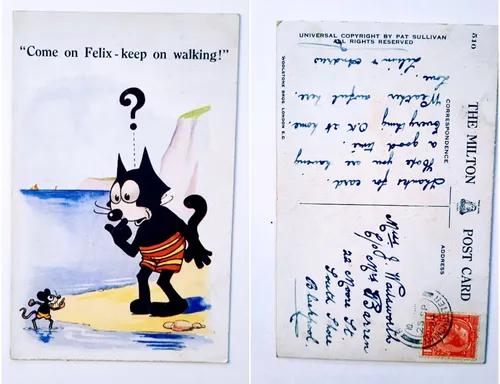 "Come on Felix - keep on walking!"
?
UNIVERSAL COPYRIGHT BY PAT SULLIVAN
ALL RIGHTS RESERVED
510
WOOLSTONE BROS. LONDON E.C.
THE MILTON POST CARD
CORRESPONDENCE
ADDRESS
Thanks for card
Hope you are having
a good time.
Everything O.K. at home.
Weather awful here.
Love.
Lilian &
Miss J Wadsworth
C/o Mrs Barren
22 Moore St.
South Shore
Blackpool.